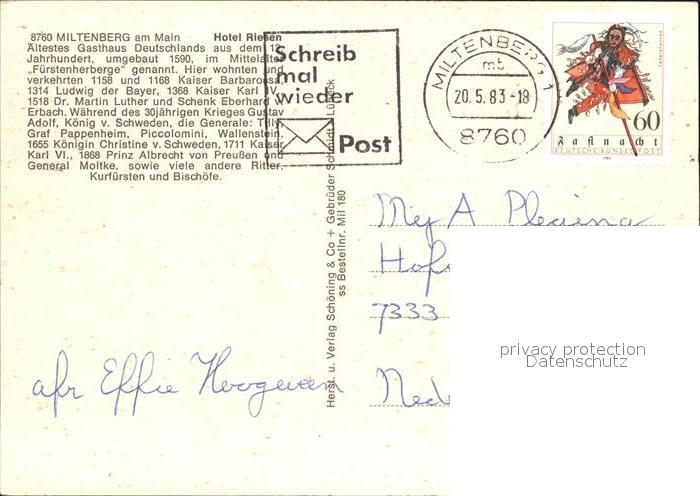 8760 MILTENBERG am Main Hotel Riesen
Ältestes Gasthaus Deutschlands aus dem 12.
Jahrhundert, umgebaut 1590, im Mittelalter
„Fürstenherberge" genannt. Hier wohnten und
verkehrten 1158 und 1168 Kaiser Barbarossa,
1314 Ludwig der Bayer, 1368 Kaiser Karl IV.,
1518 Dr. Martin Luther und Schenk Eberhard v.
Erbach. Während des 30jährigen Krieges Gustav
Adolf, König v. Schweden, die Generale: Tilly,
Graf Pappenheim, Piccolomini, Wallenstein,
1655 Königin Christine v. Schweden, 1711 Kaiser
Karl VI., 1868 Prinz Albrecht von Preußen und
General Moltke, sowie viele andere Ritter,
Kurfürsten und Bischöfe.
Schreib
mal
wieder
Post
MILTENBERG 1
mb
20.5.83-18
8760
60
Fastnacht
DEUTSCHE BUNDESPOST
1983
Herst. u. Verlag Schöning & Co + Gebrüder Schmidt, Lübeck
ss Bestellnr. Mil 180
Mej A
7333
afr Effie Hoogeveen
privacy protection
Datenschutz